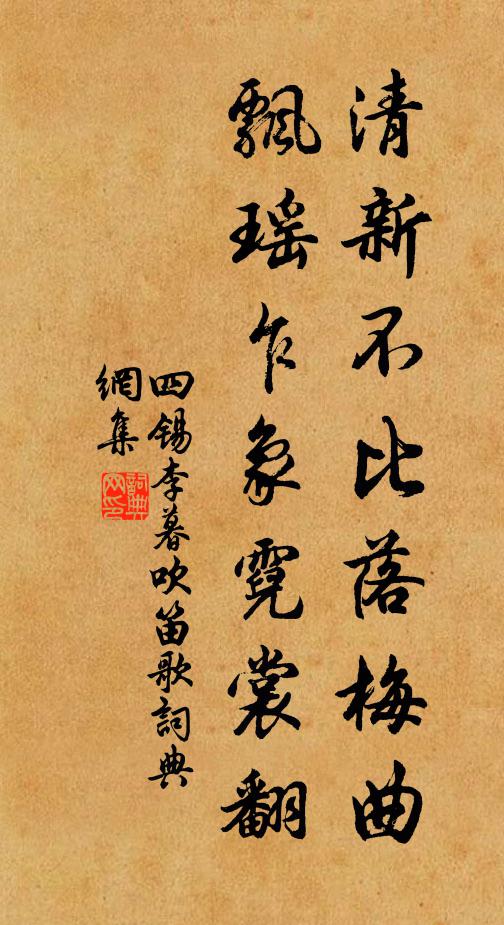 清新不比落梅曲
飄瑶乍象霓裳翻
四錫李暮吹笛歌詞典
網集
詞典
网印